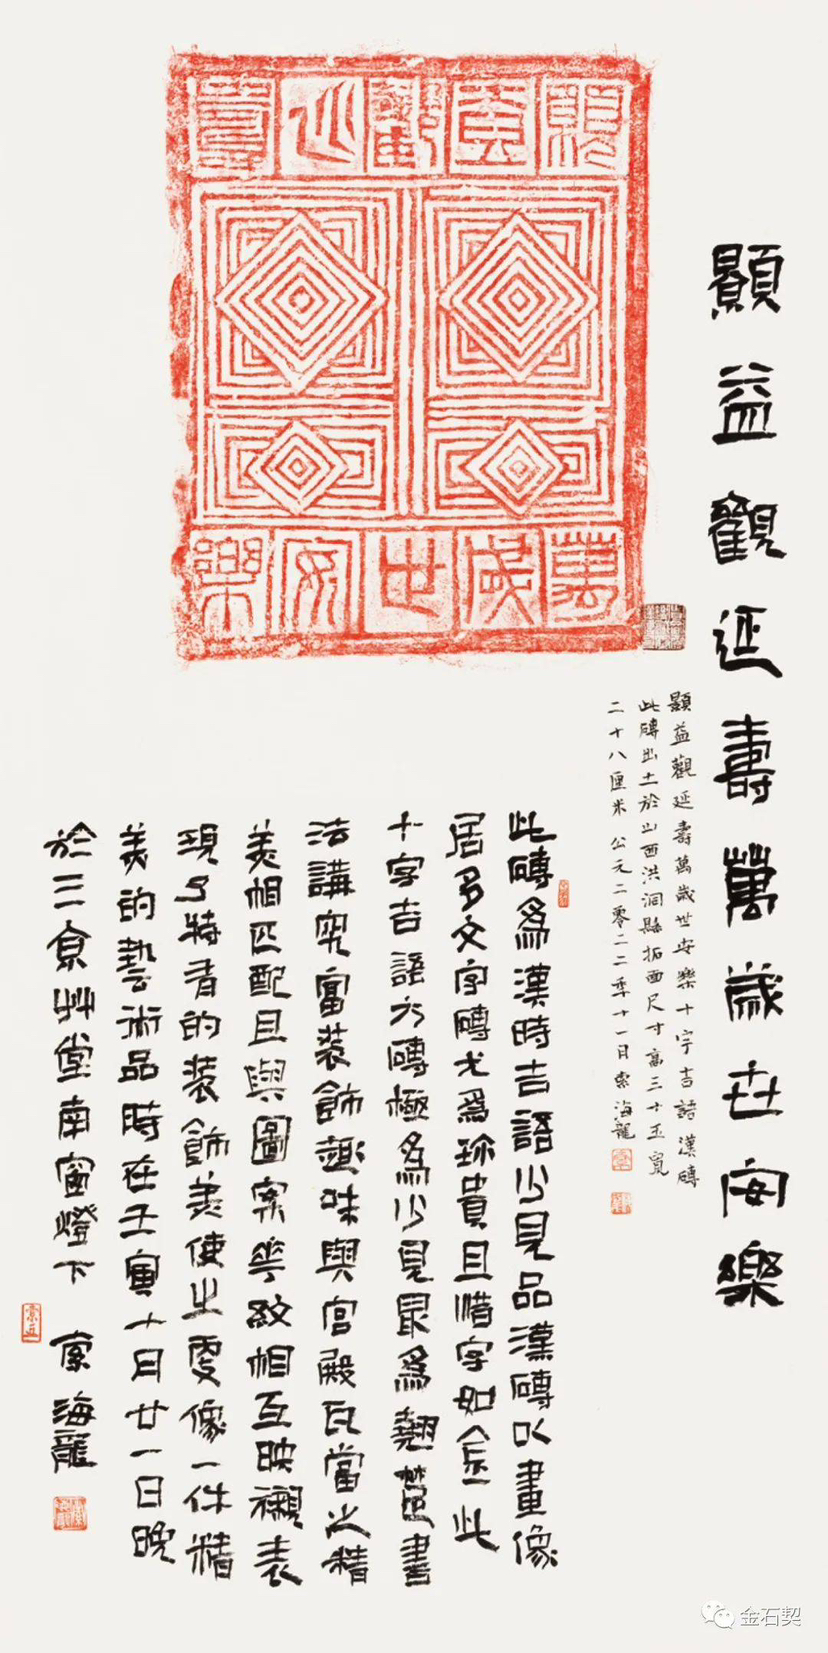 顯益觀延壽萬歲世安樂
顯益觀延壽
萬歲世安樂
顯益觀延壽萬歲世安樂十字吉語漢磚
此磚出土於山西洪洞縣拓面尺寸高三十五寬
二十八厘米 公元二零二二年十一月索海龍
此磚爲漢時吉語少見品漢磚以畫像
居多文字磚尤爲珍貴且惜字如金此
十字吉語方磚極爲少見最爲翹楚書
法講究富裝飾趣味與宮殿瓦當之精
美相匹配且與圖案花紋相互映襯表
現了特有的裝飾美使之更像一件精
美的藝術品時在壬寅十月廿一日晚
於三食艸堂南窗燈下 索海龍
金石契